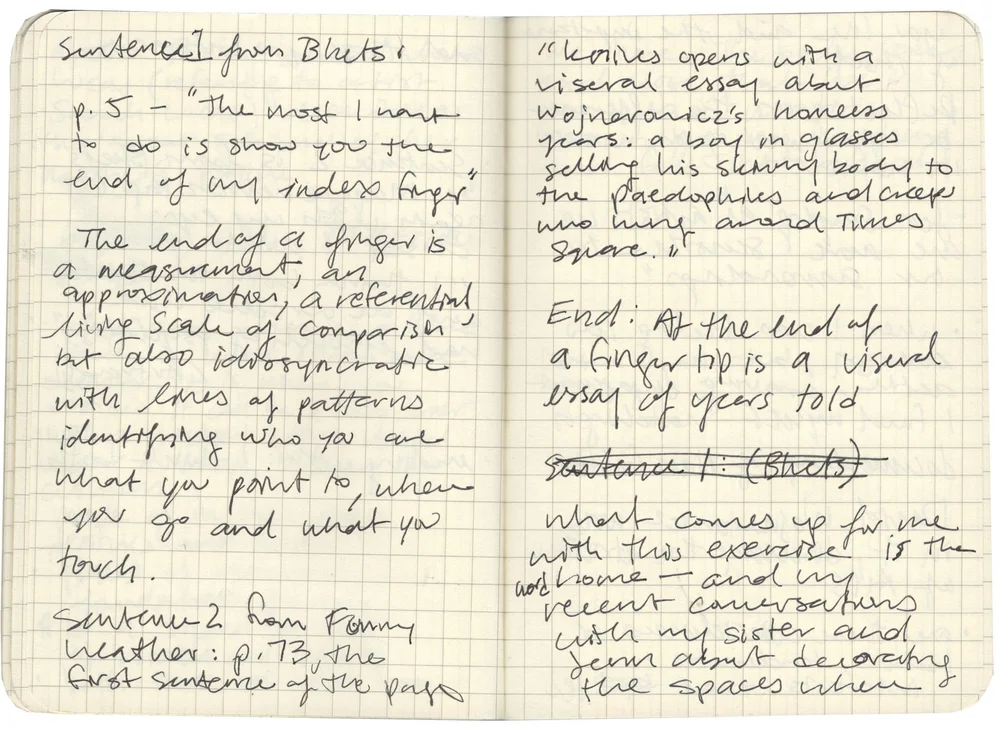 Sentence 1 from Bluets:
p. 5 – "The most I want
to do is show you the
end of my index finger"
The end of a finger is
a measurement, an
approximation, a referential,
living scale of comparison
but also idiosyncratic
with lines of patterns
identifying who you are
what you point to, where
you go and what you
touch.
Sentence 2 from Funny
Weather: p. 73, the
first sentence of the page
"Knives opens with a
viseral essay about
Wojnarovicz's homeless
years: a boy in glasses
selling his skinny body to
the paedophiles and creeps
who hung around Times
Square."
End: At the end of
a finger tip is a viseral
essay of years told
Sentence 1: (Bluets)
What comes up for me
with this exercise is the
word home – and my
recent conversations
with my sister and
Jenn about decorating
the spaces where